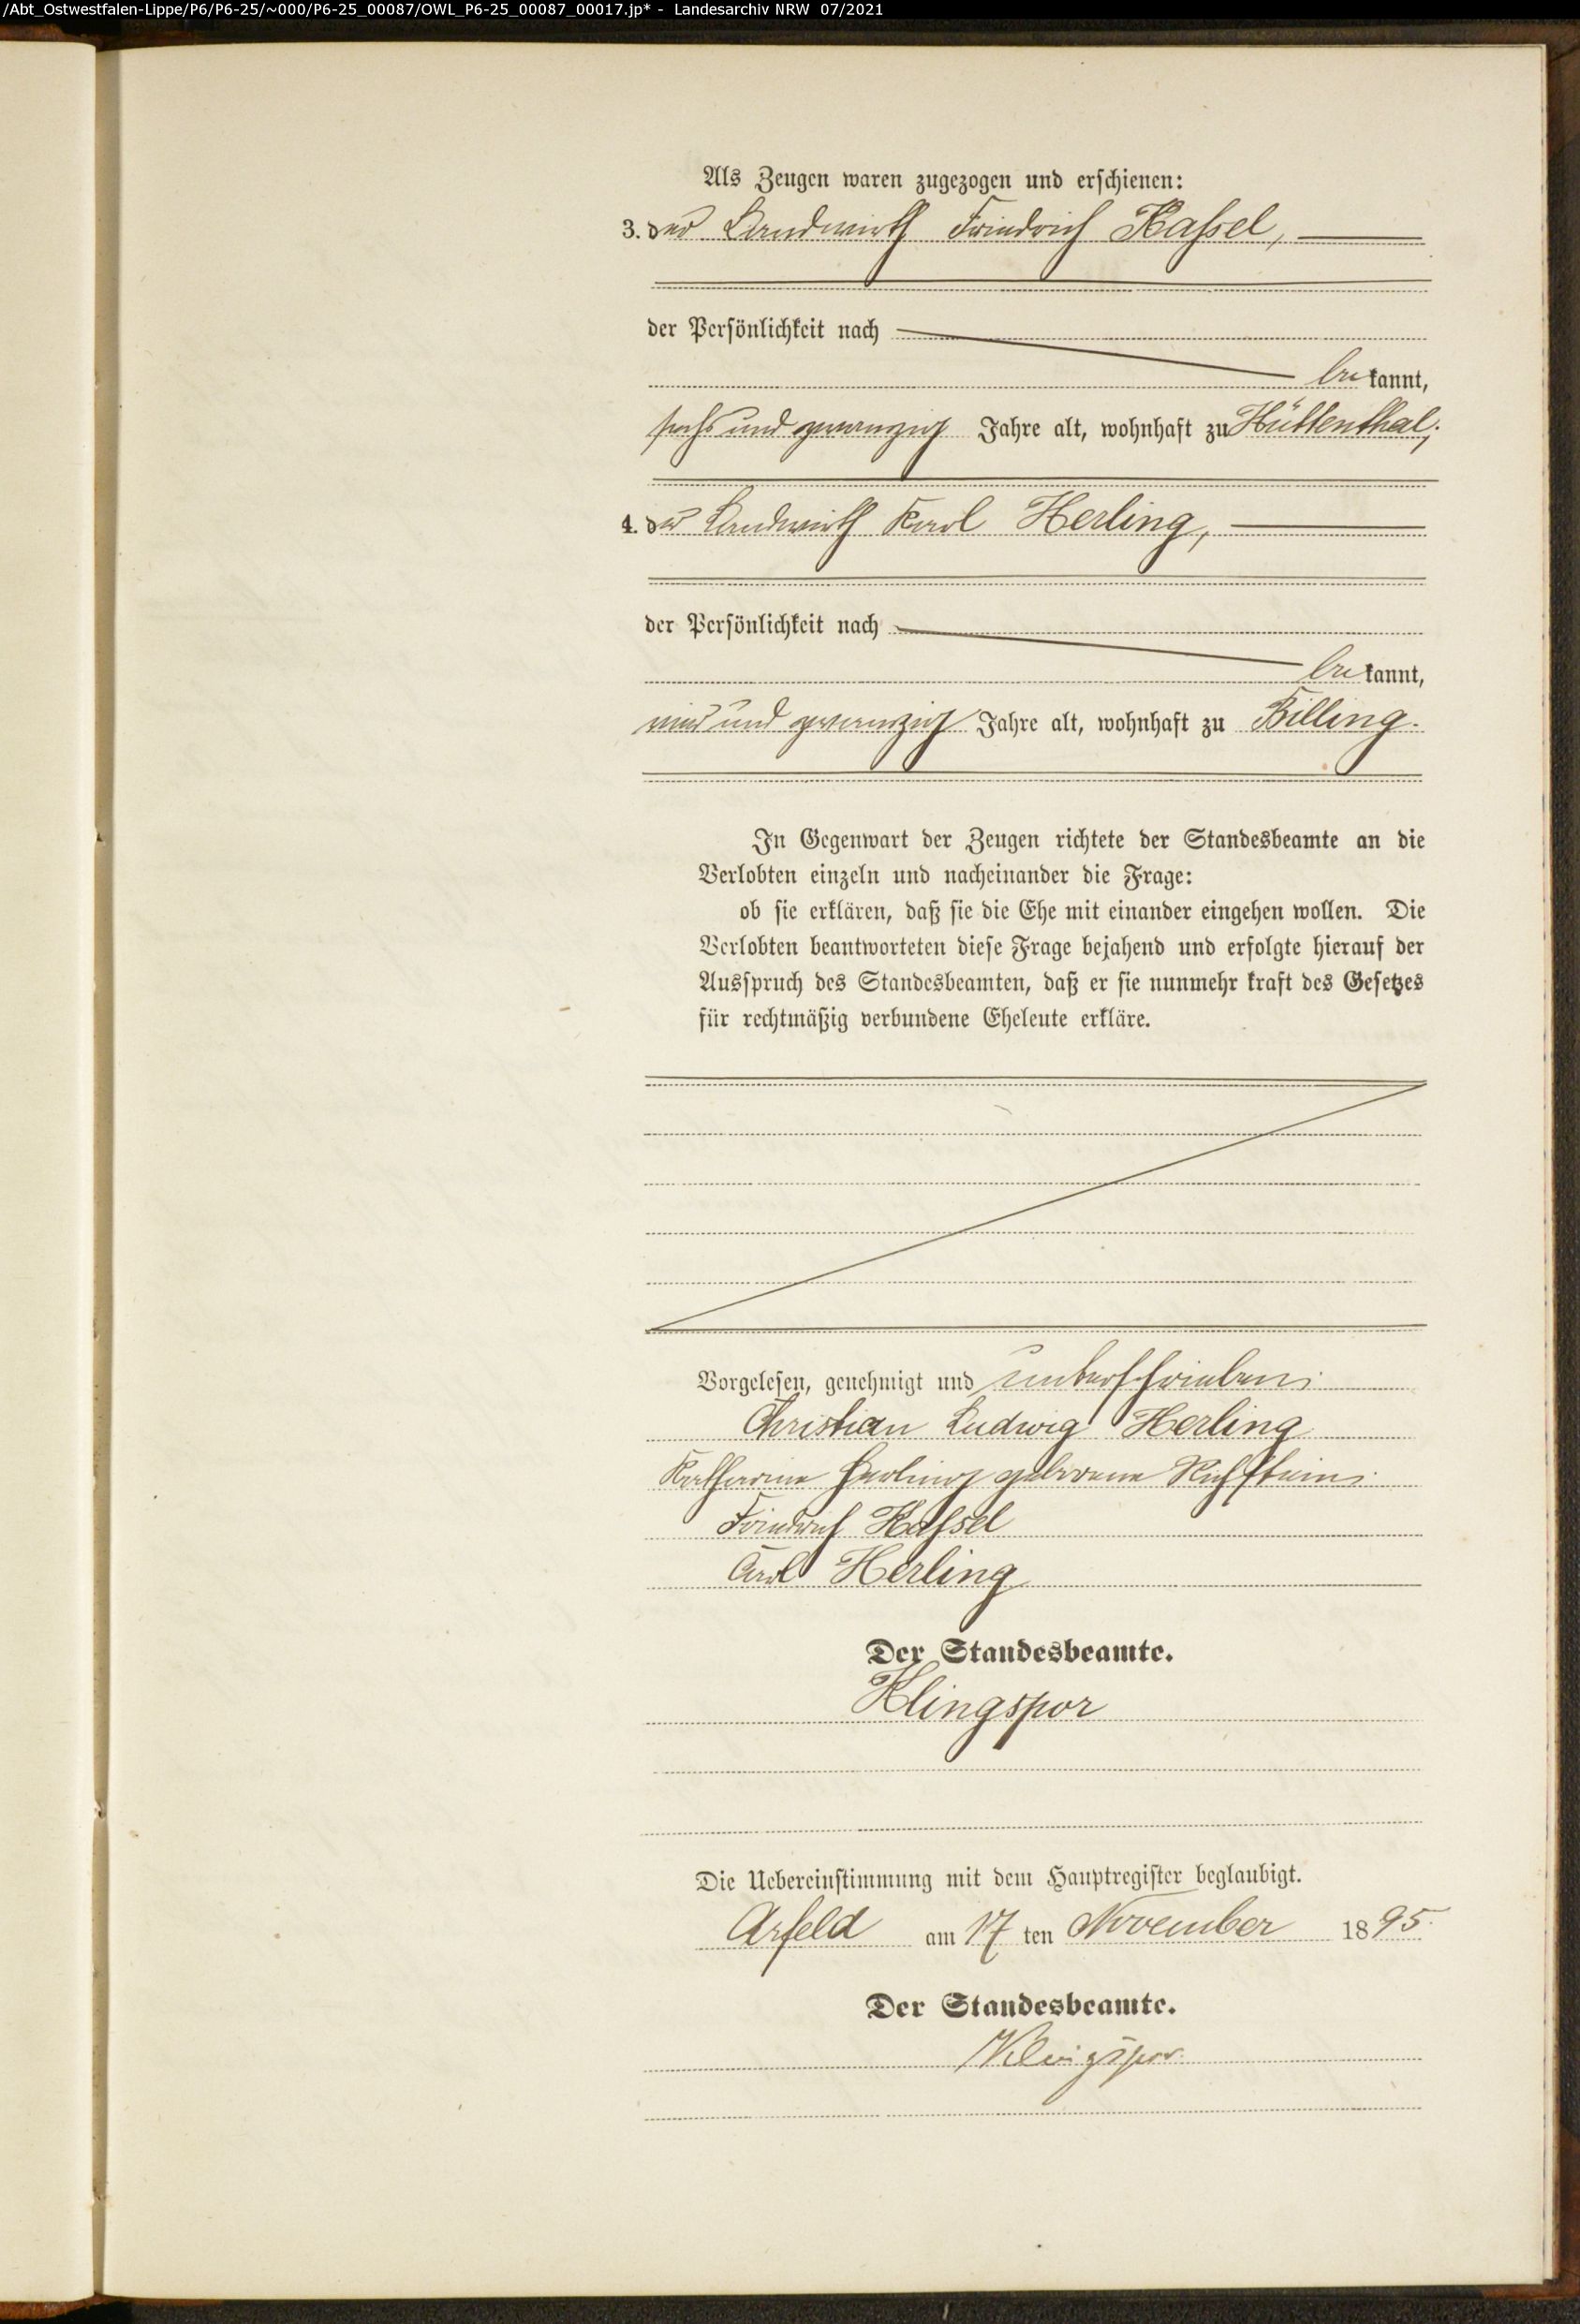 /Abt_Ostwestfalen-Lippe/P6/P6-25/~000/P6-25_00087/OWL_P6-25_00087_00017.jp* - Landesarchiv NRW 07/2021
Als Zeugen waren zugezogen und erschienen:
3. der Landwirth Friedrich Kassel,
der Persönlichkeit nach
bekannt,
sechs und zwanzig Jahre alt, wohnhaft zu Hüttenthal;
4. der Landwirth Karl Herling,
der Persönlichkeit nach
bekannt,
und zwanzig Jahre alt, wohnhaft zu Billing.
In Gegenwart der Zeugen richtete der Standesbeamte an die
Verlobten einzeln und nacheinander die Frage:
ob sie erklären, daß sie die Ehe mit einander eingehen wollen. Die
Verlobten beantworteten diese Frage bejahend und erfolgte hierauf der
Ausspruch des Standesbeamten, daß er sie nunmehr kraft des Gesetzes
für rechtmäßig verbundene Eheleute erkläre.
Vorgelesen, genehmigt und unterschrieben:
Christian Ludwig Herling
Katharine Herling geborene Richstein.
Friedrich Kassel
Carl Herling
Der Standesbeamte.
Klingspor
Die Uebereinstimmung mit dem Hauptregister beglaubigt.
Arfeld am 17 ten November 1895.
Der Standesbeamte.
Klingspor.